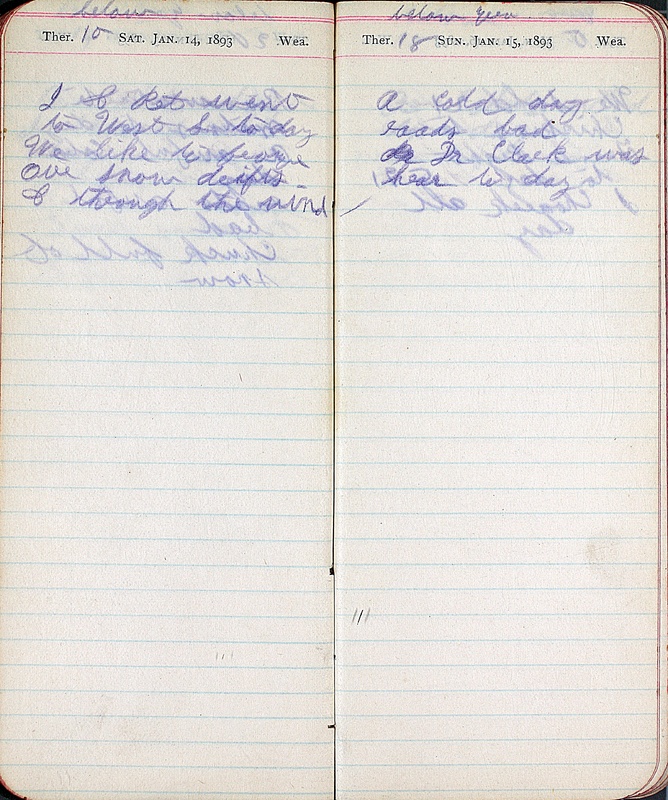 below
Ther. 10 SAT. JAN. 14, 1893 Wea.
I & Ket went
to West S to day
We like to
Ove snow
& through the wind
below
Ther. 18 SUN. JAN. 15, 1893 Wea.
A cold day
roads bad
Dr Clark was
hear to day